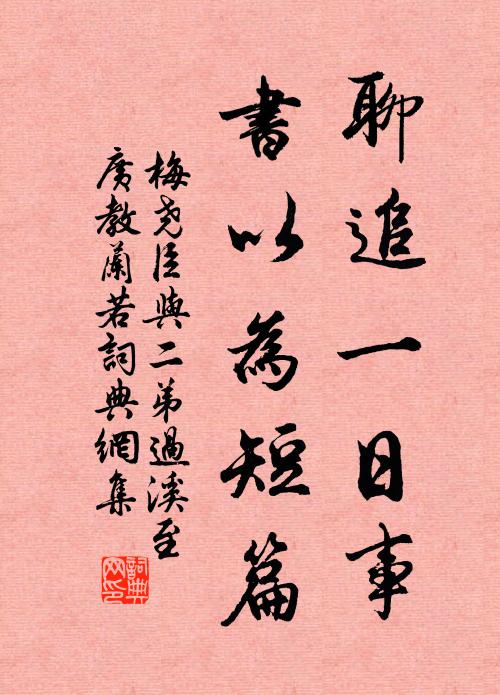 聊追一日事
書以為短篇
梅堯臣與二弟過溪至
廣教蘭若詞典網集
詞典网印